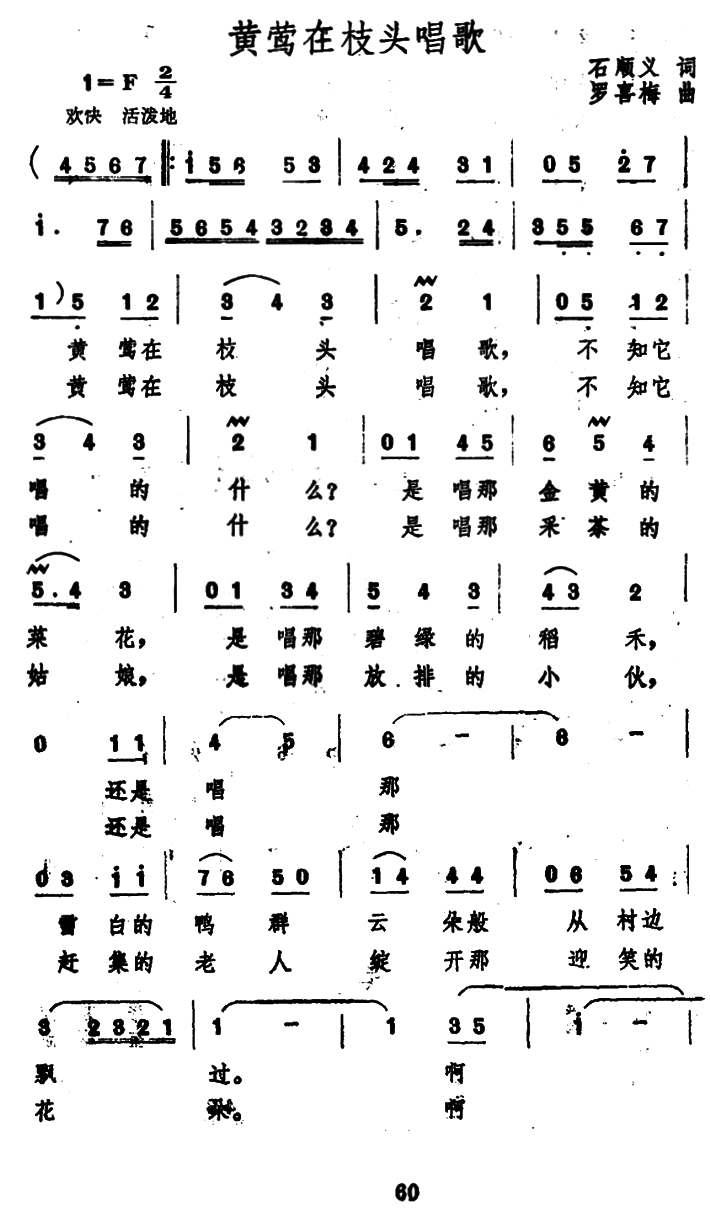 黄莺在枝头唱歌
1=F 2/4
石顺义 词
罗喜梅 曲
欢快 活泼地
( 4 5 6 7 |: i 5 6 5 3 | 4 2 4 3 1 | 0 5 2̇ 7 |
i . 7 6 | 5 6 5 4 3 2 3 4 | 5 . 2 4 | 3 5 5 6 7 |
1 ) 5 1 2 | 3 4 3 | 2 1 | 0 5 1 2 |
黄 莺在 枝 头 唱 歌, 不 知它
黄 莺在 枝 头 唱 歌, 不 知它
3 4 3 | 2 1 | 0 1 4 5 | 6 5 4 |
唱 的 什 么? 是 唱那 金 黄 的
唱 的 什 么? 是 唱那 采 茶 的
5 . 4 3 | 0 1 3 4 | 5 4 3 | 4 3 2 |
菜 花, 是 唱那 碧 绿 的 稻 禾,
姑 娘, 是 唱那 放 排 的 小 伙,
0 1 1 | 4 5 | 6 - | 6 - |
还是 唱 那
还是 唱 那
0 3 i i | 7 6 5 0 | 1 4 4 4 | 0 6 5 4 |
雪 白的 鸭 群 云 朵般 从 村边
赶 集的 老 人 绽 开那 迎 笑的
3 2 3 2 1 | 1 - | 1 3 5 | i - |
飘 过。 啊
花 朵。 啊
60